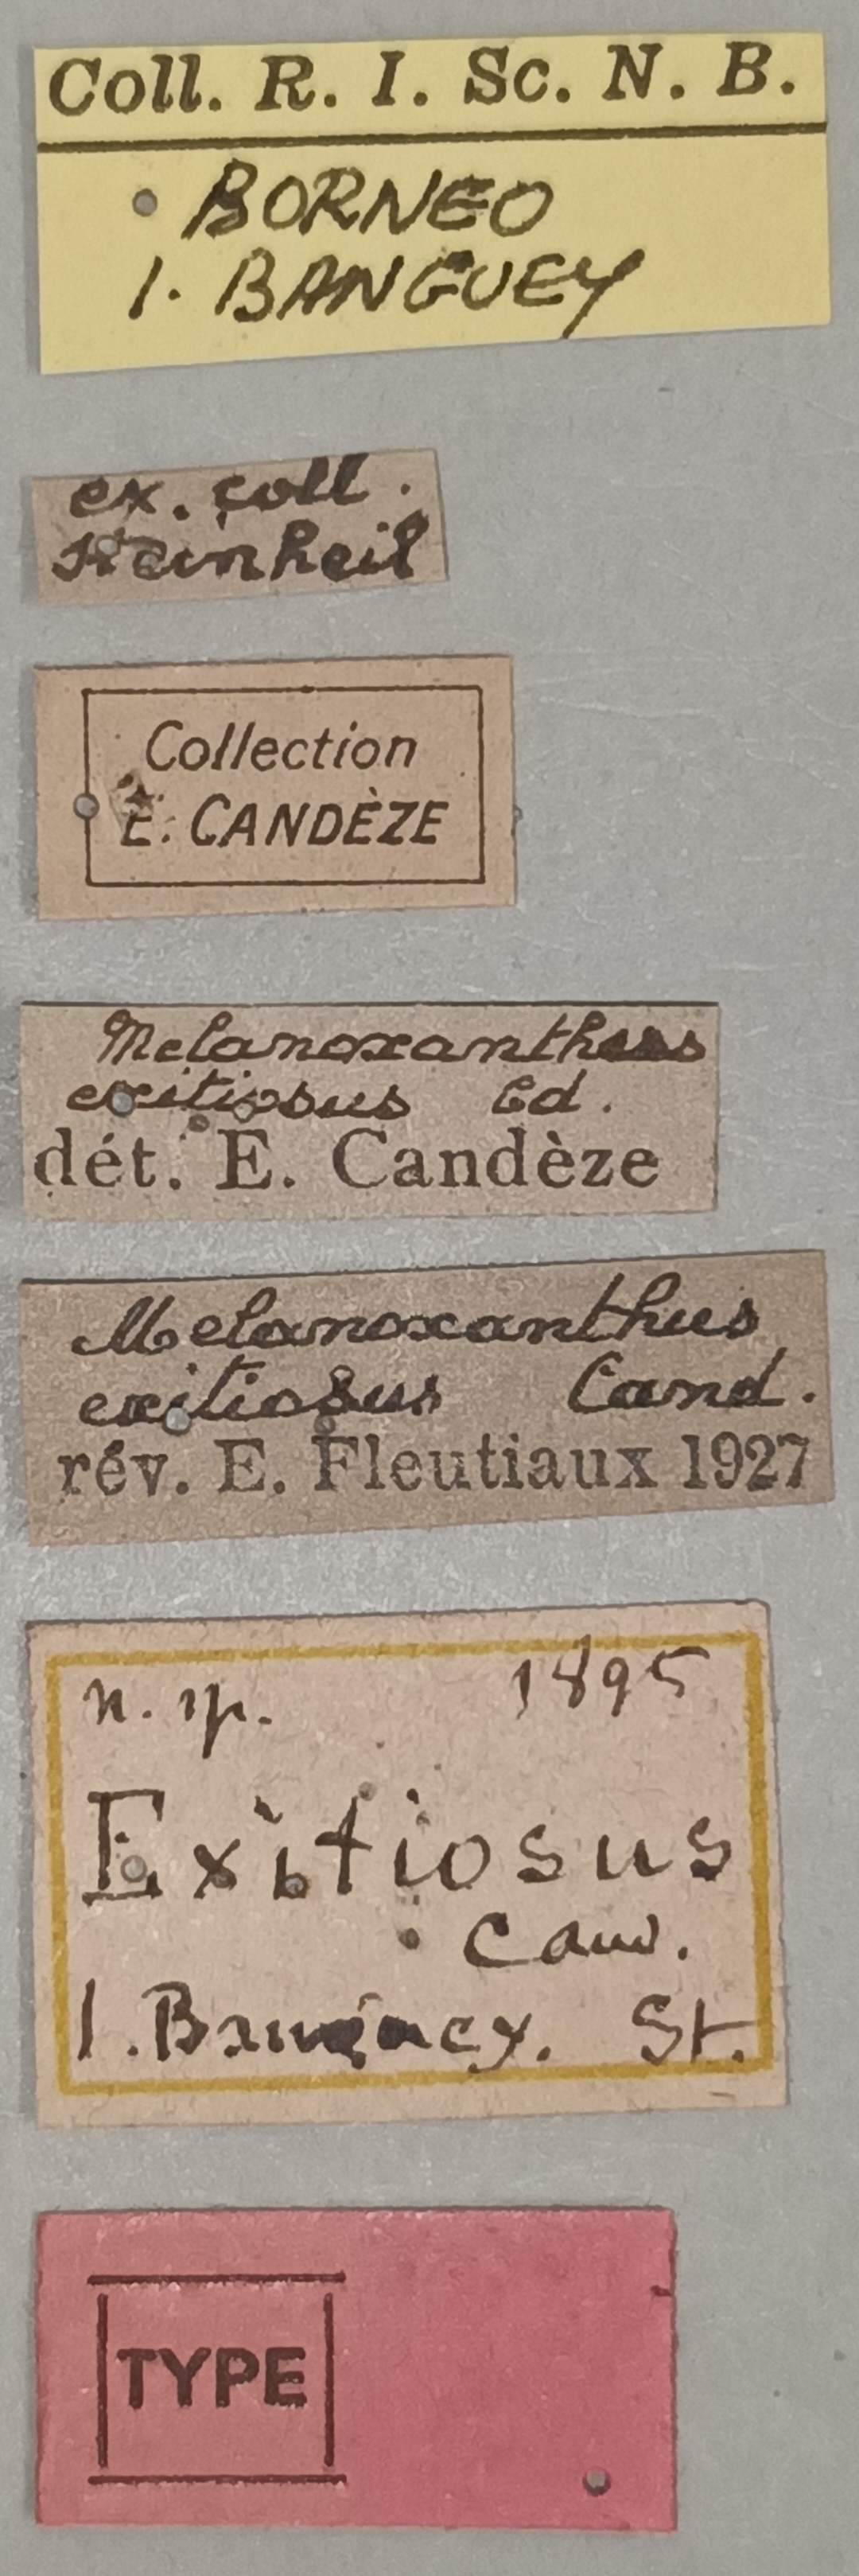 Coll. R. I. Sc. N. B.
BORNEO
I. BANGUEY
ex. coll.
Steinheil
Collection
E. CANDÈZE
Melanoxanthus
exitiosus Cd.
dét. E. Candèze
Melanoxanthus
exitiosus Cand.
rév. E. Fleutiaux 1927
n. sp. 1895
Exitiosus
Cand.
I. Banguey. St.
TYPE